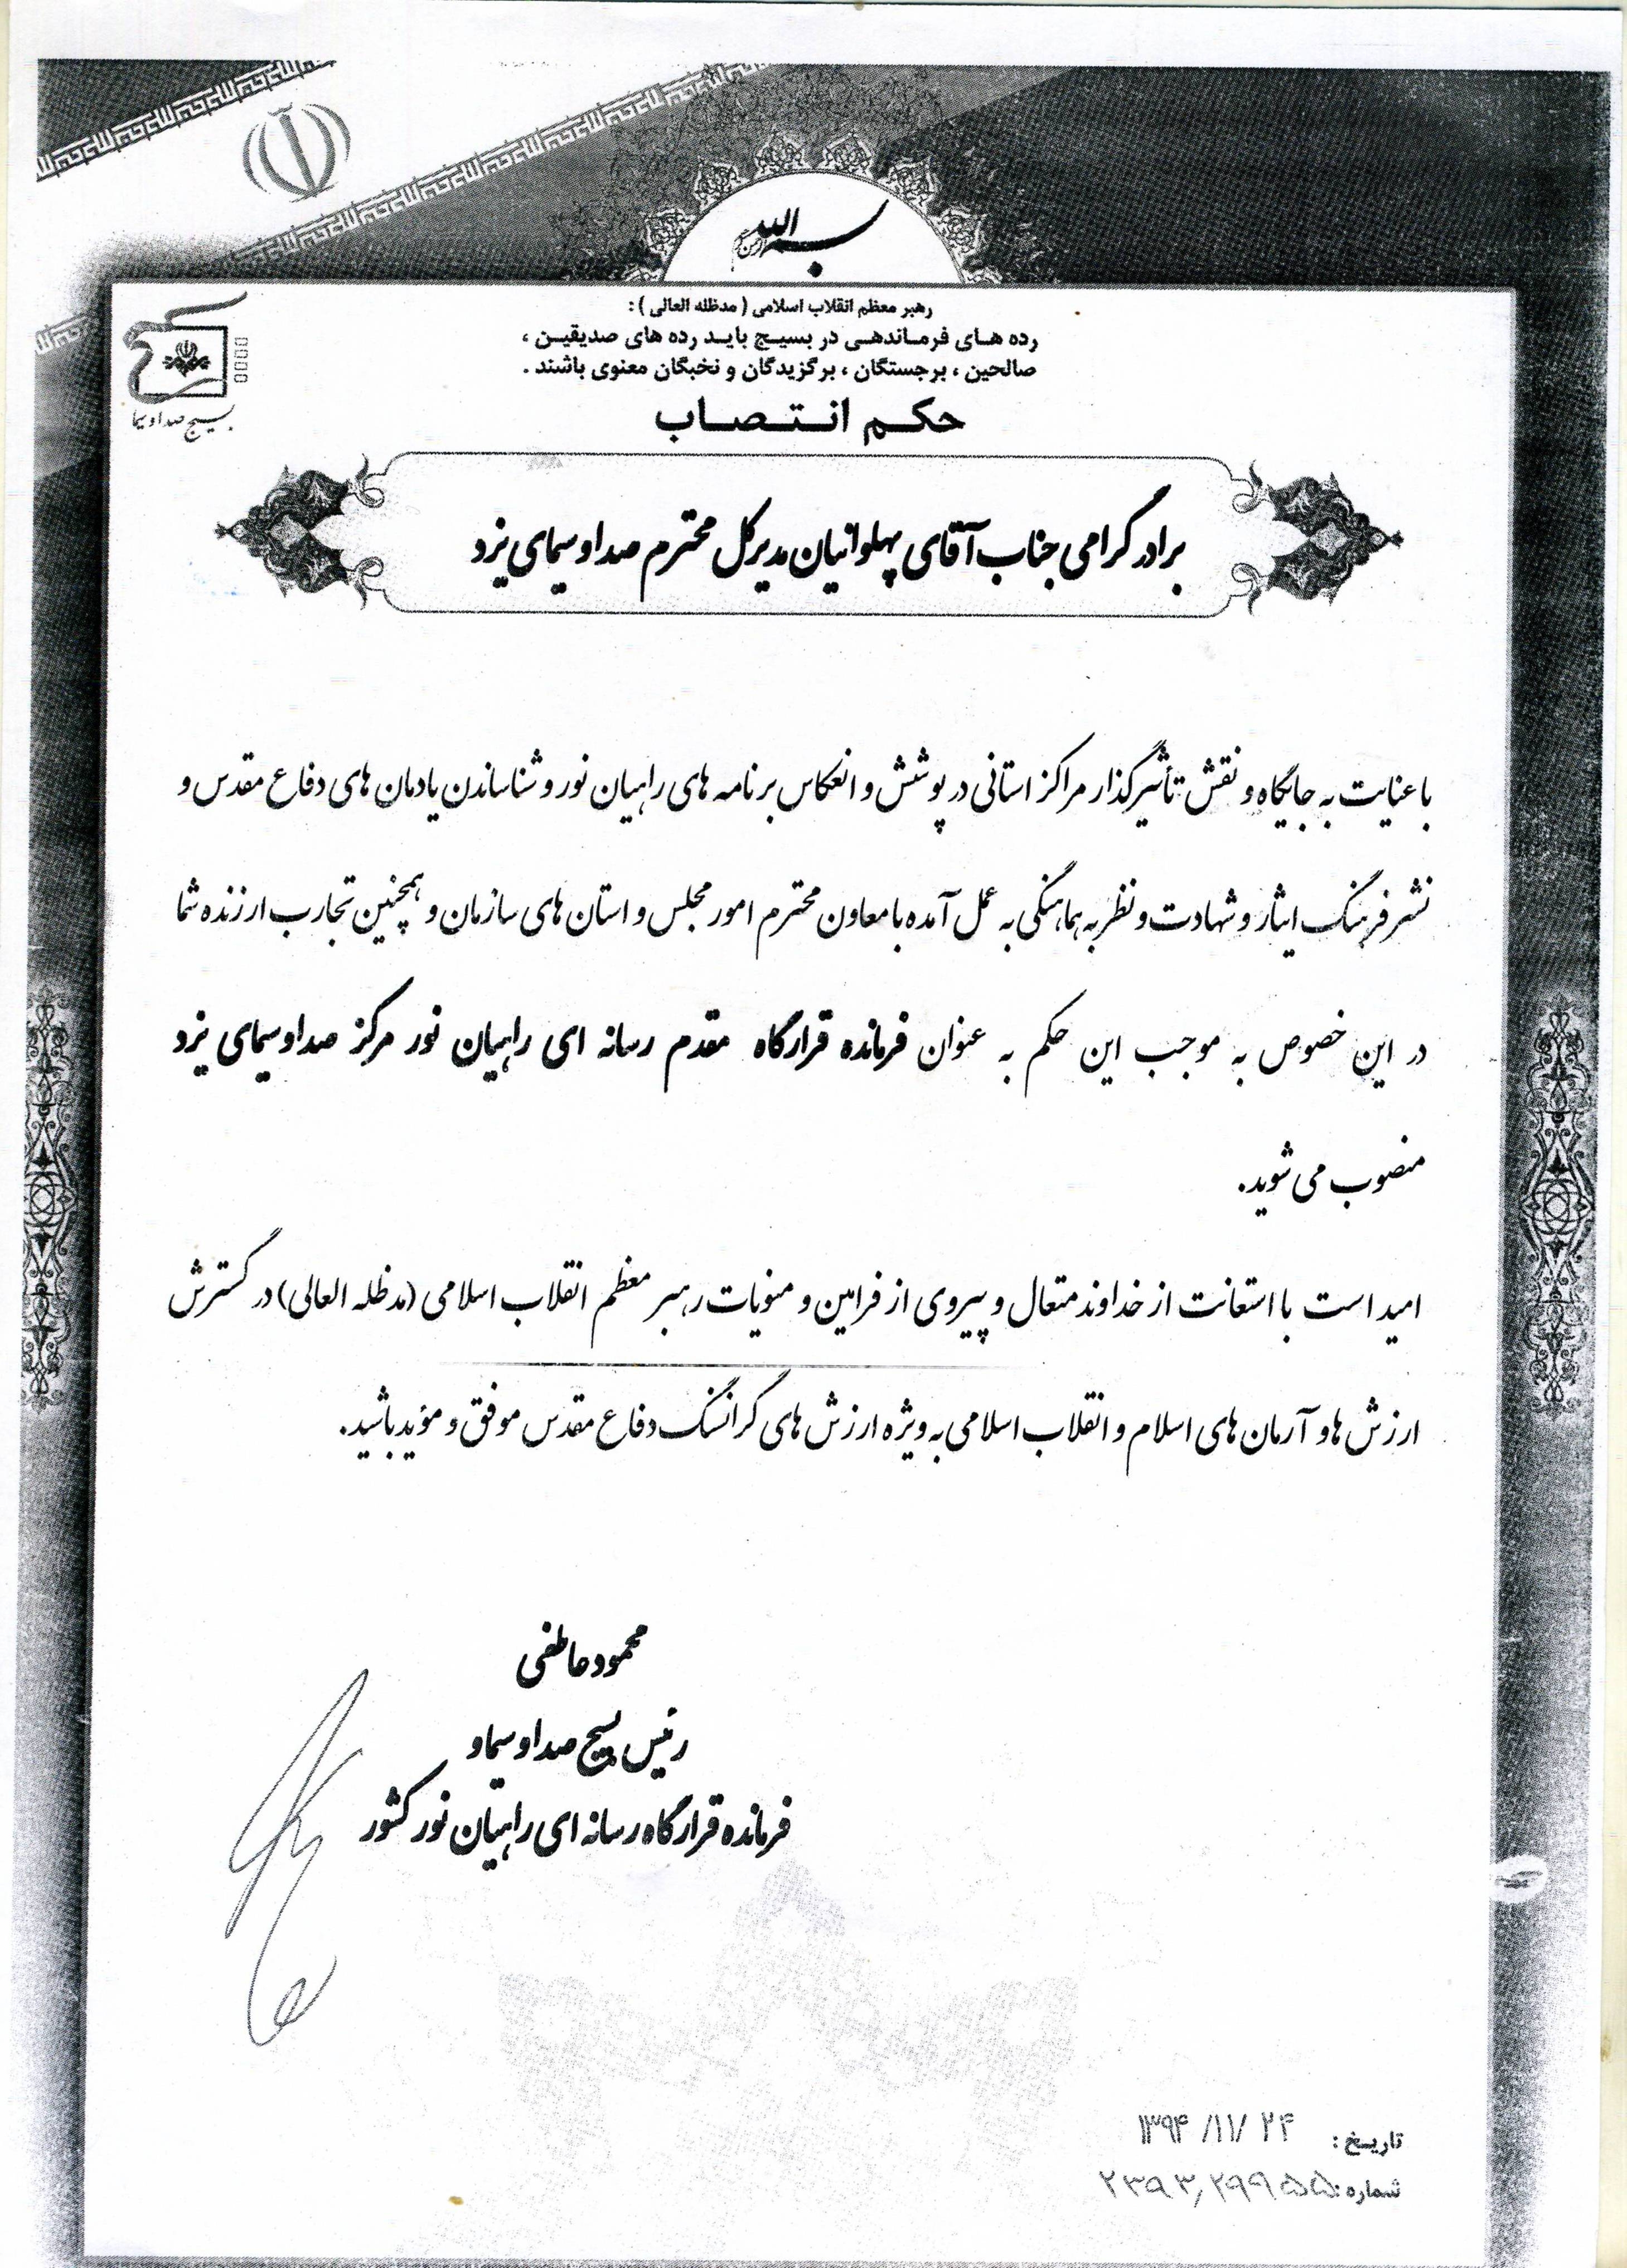 بسم الله الرحمن الرحیم
رهبر معظم انقلاب اسلامی ( مدظله العالی ) :
رده های فرماندهی در بسیج باید رده های صدیقین ،
صالحین ، برجستگان ، برگزیدگان و نخبگان معنوی باشند .
بسیج صدا و سیما
حکم انتصاب
برادر گرامی جناب آقای پهلوانیان مدیرکل محترم صدا و سیمای یزد
با عنایت به جایگاه و نقش تأثیرگذار مراکز استانی در پوشش و انعکاس برنامه های راهیان نور و شناساندن یادمان های دفاع مقدس و
نشر فرهنگ ایثار و شهادت و نظر به هماهنگی به عمل آمده با معاون محترم امور مجلس و استان های سازمان و همچنین تجارب ارزنده شما
در این خصوص به موجب این حکم به عنوان فرمانده قرارگاه مقدم رسانه ای راهیان نور مرکز صدا و سیمای یزد
منصوب می شوید.
امید است با استعانت از خداوند متعال و پیروی از فرامین و منویات رهبر معظم انقلاب اسلامی (مدظله العالی) در گسترش
ارزش ها و آرمان های اسلام و انقلاب اسلامی به ویژه ارزش های گرانسنگ دفاع مقدس موفق و موید باشید.
محمود عاطفی
رئیس بسیج صدا و سیما و
فرمانده قرارگاه رسانه ای راهیان نور کشور
تاریخ : ۱۳۹۴/۱۱/۲۴
شماره :